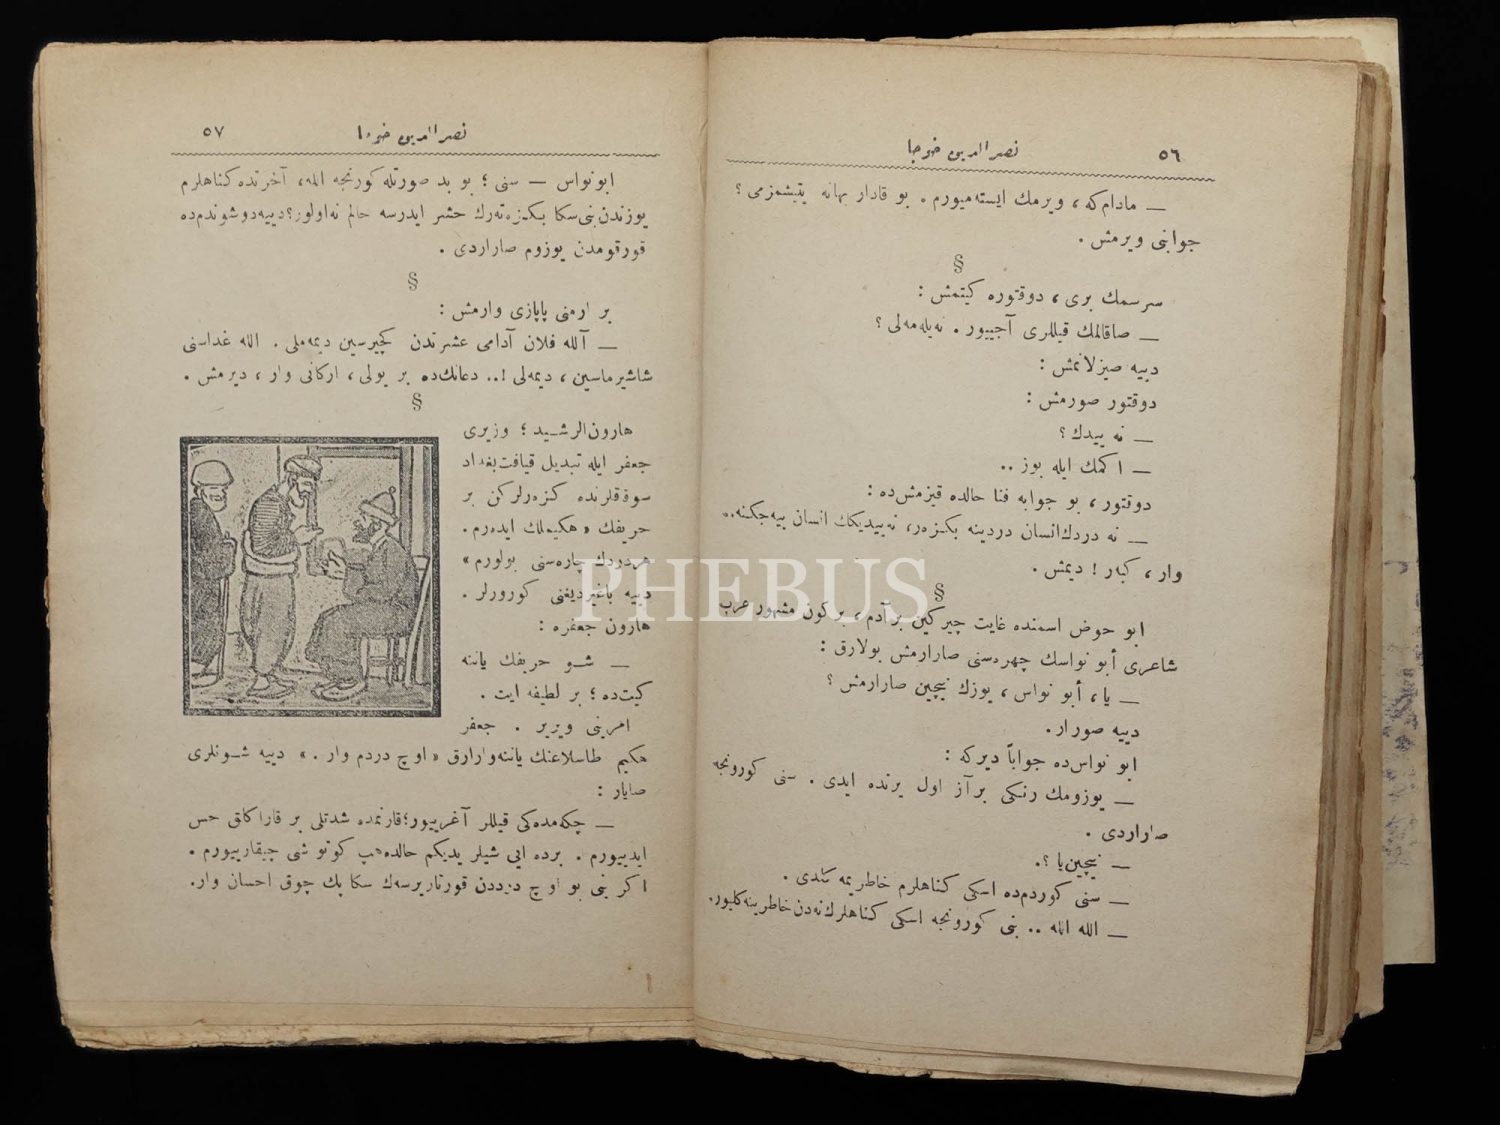 ٥٦ نصرالدين خوجا
— مادام‌كه ، ويرمك ايسته‌ميورم . بو قادار بهانه يتيشمزمى ؟
جوابنى ويرمش .
§
سرسمك برى ، دوقتوره كيتمش :
— صاقالمك قيللرى آجييور . نه‌يله‌مه‌لى ؟
دييه صيزلانمش :
دوقتور صورمش :
— نه ييدك ؟
— اكمك ايله بوز ..
دوقتور ، بو جوابه فنا حالده قيزمش‌ده :
— نه دردك انسان دردينه بكزه‌ر ، نه ييديكك انسان ييه‌جكنه..
وار ، كبه‌ر ! ديمش .
§
ابو حوض اسمنده غايت چيركين بر آدم ، بر كون مشهور عرب
شاعرى أبو نواسك چهره‌سنى صارارمش بولارق :
— يا ، أبو نواس ، يوزك نيچين صارارمش ؟
دييه صورار .
ابو نواس‌ده جواباً ديركه :
— يوزومك رنكى بر آز اول يرنده ايدى . سنى كورونجه
صاراردى .
— نيچين‌يا ؟.
— سنى كوردم‌ده اسكى كناهلرم خاطريمه كلدى .
— الله الله .. بنى كورونجه اسكى كناهلرك نه‌دن خاطرينه كليور.
نصرالدين خوجا ٥٧
ابو نواس — سنى ؛ بو بد صورتله كورنجه الله ، آخرتده كناهلرم
يوزندن بنى سكا بكزه‌ته‌رك حشر ايدرسه حالم نه اولور؟ دييه دوشوندم‌ده
قورقومدن يوزوم صاراردى .
§
بر ارمنى پاپازى وارمش :
— آلله فلان آدامى عشرتدن كچيرسين ديمه‌ملى . الله غداسنى
شاشيرماسين ، ديمه‌لى !.. دعانك‌ده بر يولى ، اركانى وار ، ديرمش .
§
هارون‌الرشيد ؛ وزيرى
جعفر ايله تبديل قيافت بغداد
سوقاقلرنده كزه‌رلركن بر
حريفك « حكيملك ايده‌رم .
هر دردك چاره‌سنى بولورم »
دييه باغيرديغنى كورورلر .
هارون جعفره :
— شو حريفك ياننه
كيت‌ده ؛ بر لطيفه ايت .
امرينى ويرير . جعفر
حكيم طاسلاغنك ياننه وارارق « اوچ دردم وار . » دييه شونلرى
صايار :
— چكه‌مده‌كى قيللر آغرييور ؛ قارنمده شدتلى بر قاراكلق حس
ايدييورم . برده ايى شيلر يديكم حالده هپ كوتو شى چيقارييورم .
اكر بنى بو اوچ دردن قورتاريرسه‌ك سكا پك چوق احسان وار.
PHEBUS